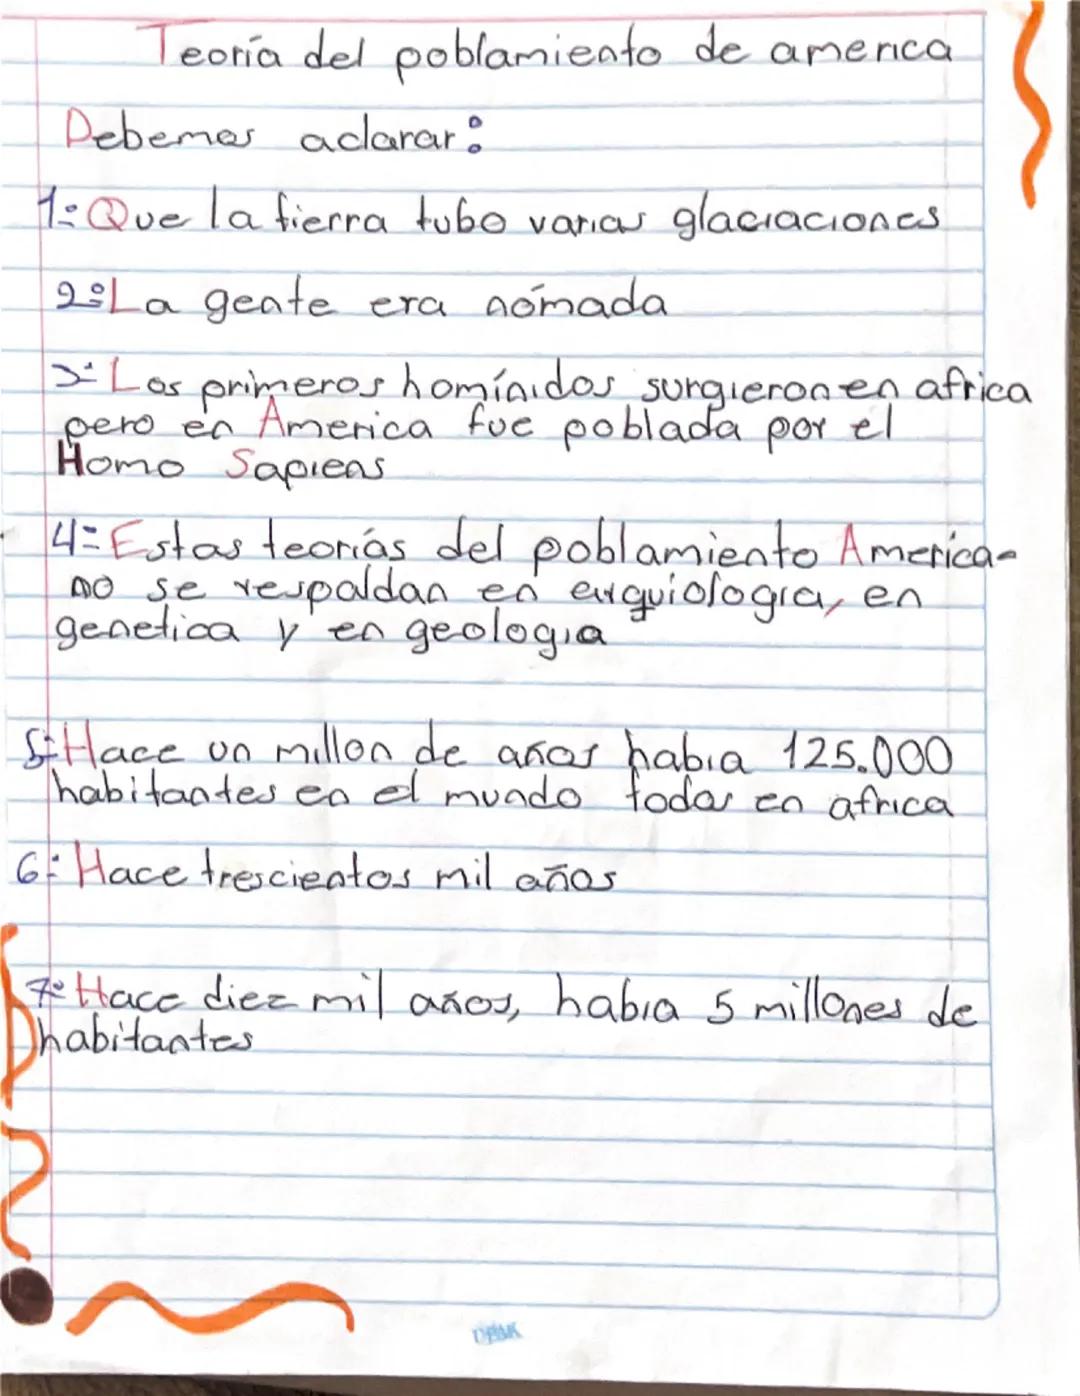 Teoría del poblamiento de america
Debemos aclarar:
1º Que la tierra tubo varias glaciaciones
2º La gente era nómada
3º Los primeros homínidos surgieron en africa
pero en America fue poblada por el
Homo Sapiens
4º Estas teorías del poblamiento America-
no se respaldan en erquiologia, en
genetica y en geologia
5º Hace un millon de años habia 125.000
habitantes en el mundo todos en africa
6º Hace trescientos mil años
7º Hace diez mil años, habia 5 millones de
habitantes